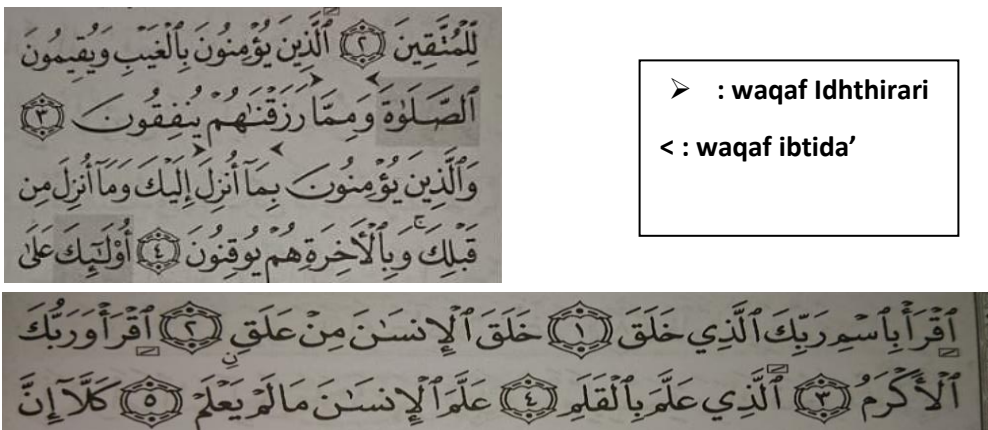 لِلْمُتَّقِينَ ﴿٢﴾ ٱلَّذِينَ يُؤْمِنُونَ بِٱلْغَيْبِ وَيُقِيمُونَ
ٱلصَّلَوٰةَ وَمِمَّا رَزَقْنَـٰهُمْ يُنفِقُونَ ﴿٣﴾
وَٱلَّذِينَ يُؤْمِنُونَ بِمَآ أُنزِلَ إِلَيْكَ وَمَآ أُنزِلَ مِن
قَبْلِكَ ۚ وَبِٱلْأَخِرَةِ هُمْ يُوقِنُونَ ﴿٤﴾ أُوْلَـٰٓئِكَ عَلَىٰ
➢ : waqaf Idhthirari
< : waqaf ibtida’
ٱقْرَأْ بِٱسْمِ رَبِّكَ ٱلَّذِي خَلَقَ ﴿١﴾ خَلَقَ ٱلْإِنسَـٰنَ مِنْ عَلَقٍ ﴿٢﴾ ٱقْرَأْ وَرَبُّكَ
ٱلْأَكْرَمُ ﴿٣﴾ ٱلَّذِي عَلَّمَ بِٱلْقَلَمِ ﴿٤﴾ عَلَّمَ ٱلْإِنسَـٰنَ مَا لَمْ يَعْلَمْ ﴿٥﴾ كَلَّآ إِنَّ